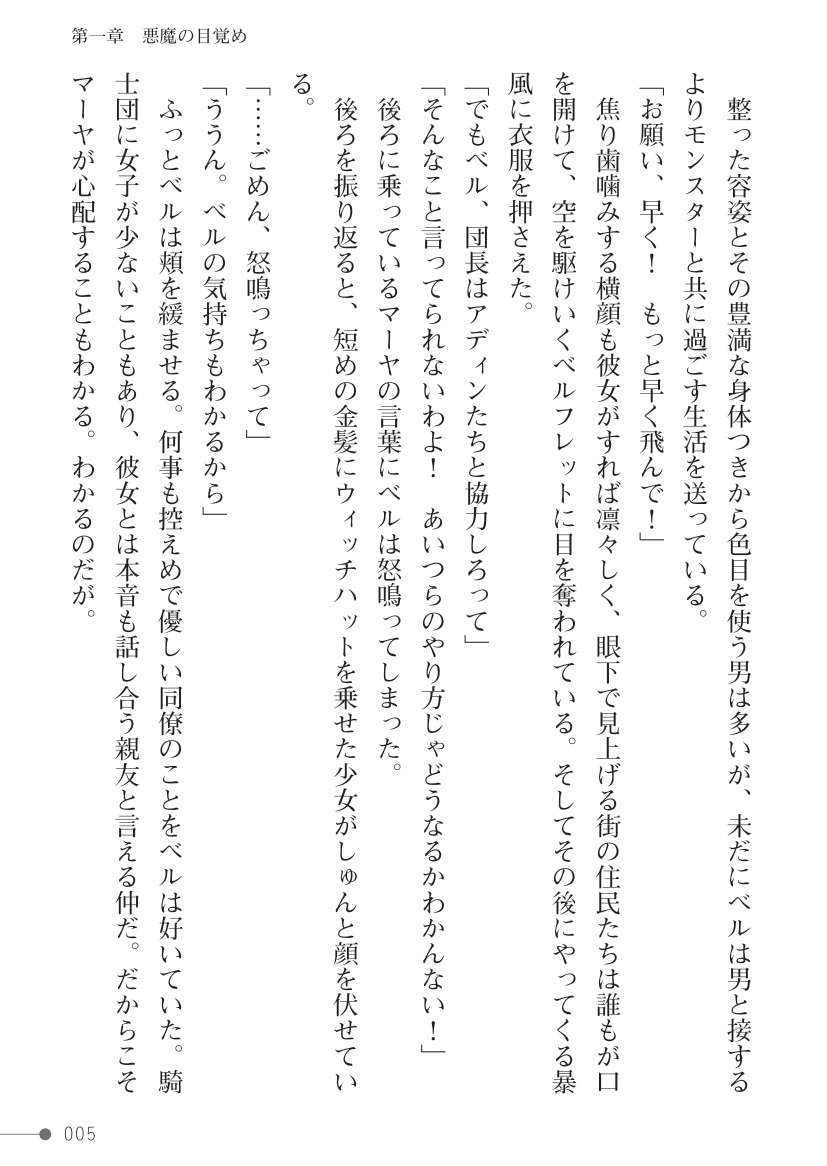 第一章　悪魔の目覚め
　整った容姿とその豊満な身体つきから色目を使う男は多いが、未だにベルは男と接する
よりモンスターと共に過ごす生活を送っている。
「お願い、早く！　もっと早く飛んで！」
　焦り歯噛みする横顔も彼女がすれば凛々しく、眼下で見上げる街の住民たちは誰もが口
を開けて、空を駆けいくベルフレットに目を奪われている。そしてその後にやってくる暴
風に衣服を押さえた。
「でもベル、団長はアディンたちと協力しろって」
「そんなこと言ってられないわよ！　あいつらのやり方じゃどうなるかわかんない！」
　後ろに乗っているマーヤの言葉にベルは怒鳴ってしまった。
　後ろを振り返ると、短めの金髪にウィッチハットを乗せた少女がしゅんと顔を伏せてい
る。
「……ごめん、怒鳴っちゃって」
「ううん。ベルの気持ちもわかるから」
　ふっとベルは頬を緩ませる。何事も控えめで優しい同僚のことをベルは好いていた。騎
士団に女子が少ないこともあり、彼女とは本音も話し合う親友と言える仲だ。だからこそ
マーヤが心配することもわかる。わかるのだが。
005